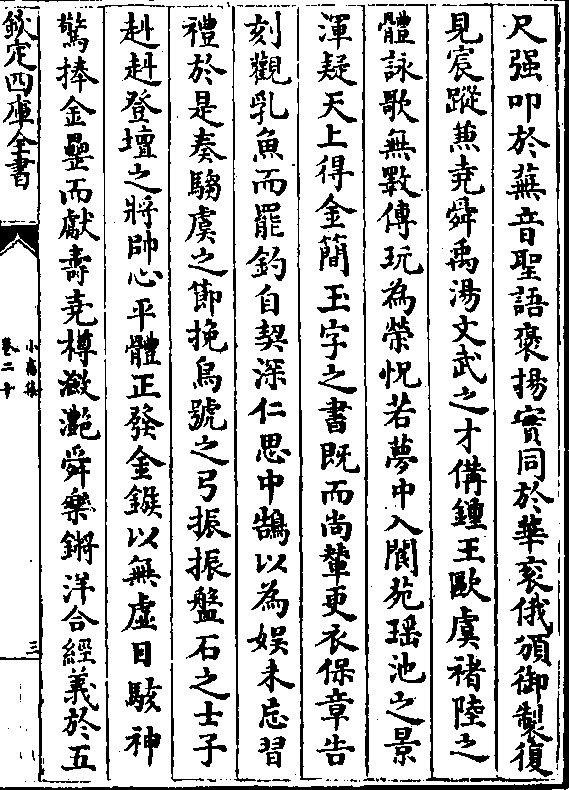 尺强叩於蕪音聖語褒揚實同於華衮俄頒御製復
見宸蹤兼堯舜禹湯文武之才備鍾王歐虞禇陸之
體詠歌無斁傳玩為榮怳若夢中入閬苑瑶池之景
渾疑天上得金簡玉字之書既而尚輦更衣保章告
刻觀乳魚而罷釣自契深仁思中鵠以為娱未忘習
禮於是奏騶虞之節挽烏號之弓振振盤石之士子
赳赳登壇之將帥心平體正發金鏃以無虚目駭神
驚捧金罍而獻壽堯樽瀲灔舜樂鏘洋合經義於五
欽定四庫全書
小畜集
卷二十
三